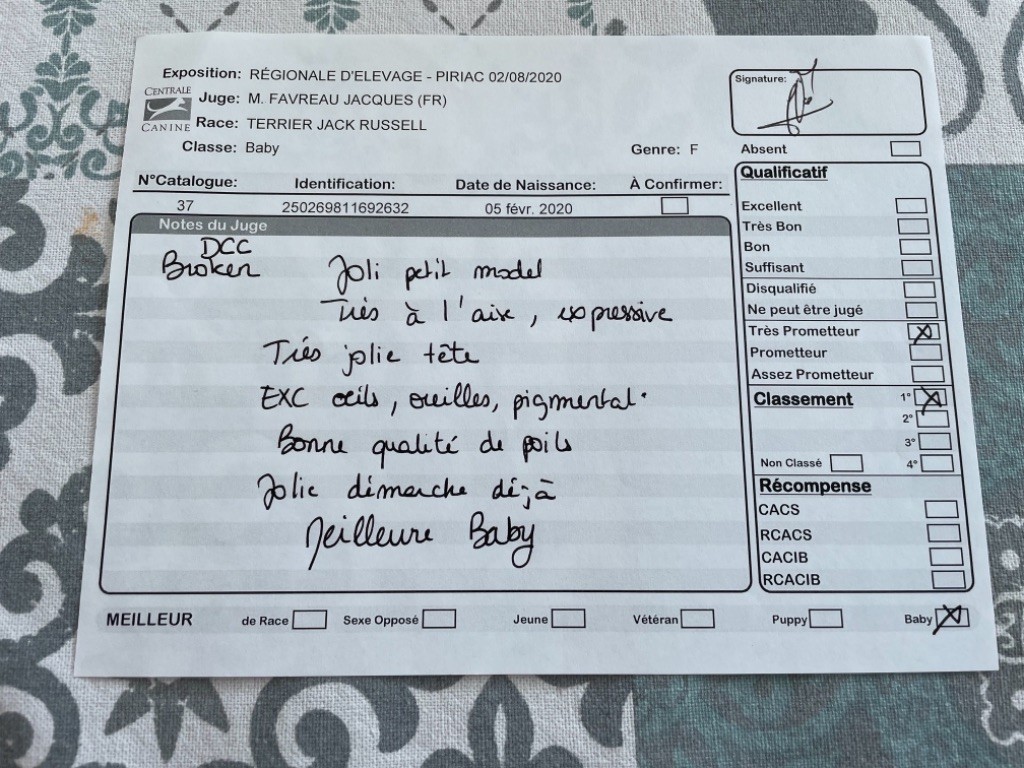 Exposition: RÉGIONALE D'ELEVAGE - PIRIAC 02/08/2020
CENTRALE CANINE
Juge: M. FAVREAU JACQUES (FR)
Race: TERRIER JACK RUSSELL
Classe: Baby
Genre: F
Signature:
Absent
N°Catalogue: Identification: Date de Naissance: À Confirmer:
37 250269811692632 05 févr. 2020
Notes du Juge
DCC
Broken Joli petit model
Très à l'aise, expressive
Très jolie tête
EXC œils, oreilles, pigmentat°
Bonne qualité de poils
Jolie démarche déjà
Meilleure Baby
Qualificatif
Excellent
Très Bon
Bon
Suffisant
Disqualifié
Ne peut être jugé
Très Prometteur
Prometteur
Assez Prometteur
Classement 1°
2°
3°
Non Classé 4°
Récompense
CACS
RCACS
CACIB
RCACIB
MEILLEUR de Race Sexe Opposé Jeune Vétéran Puppy Baby